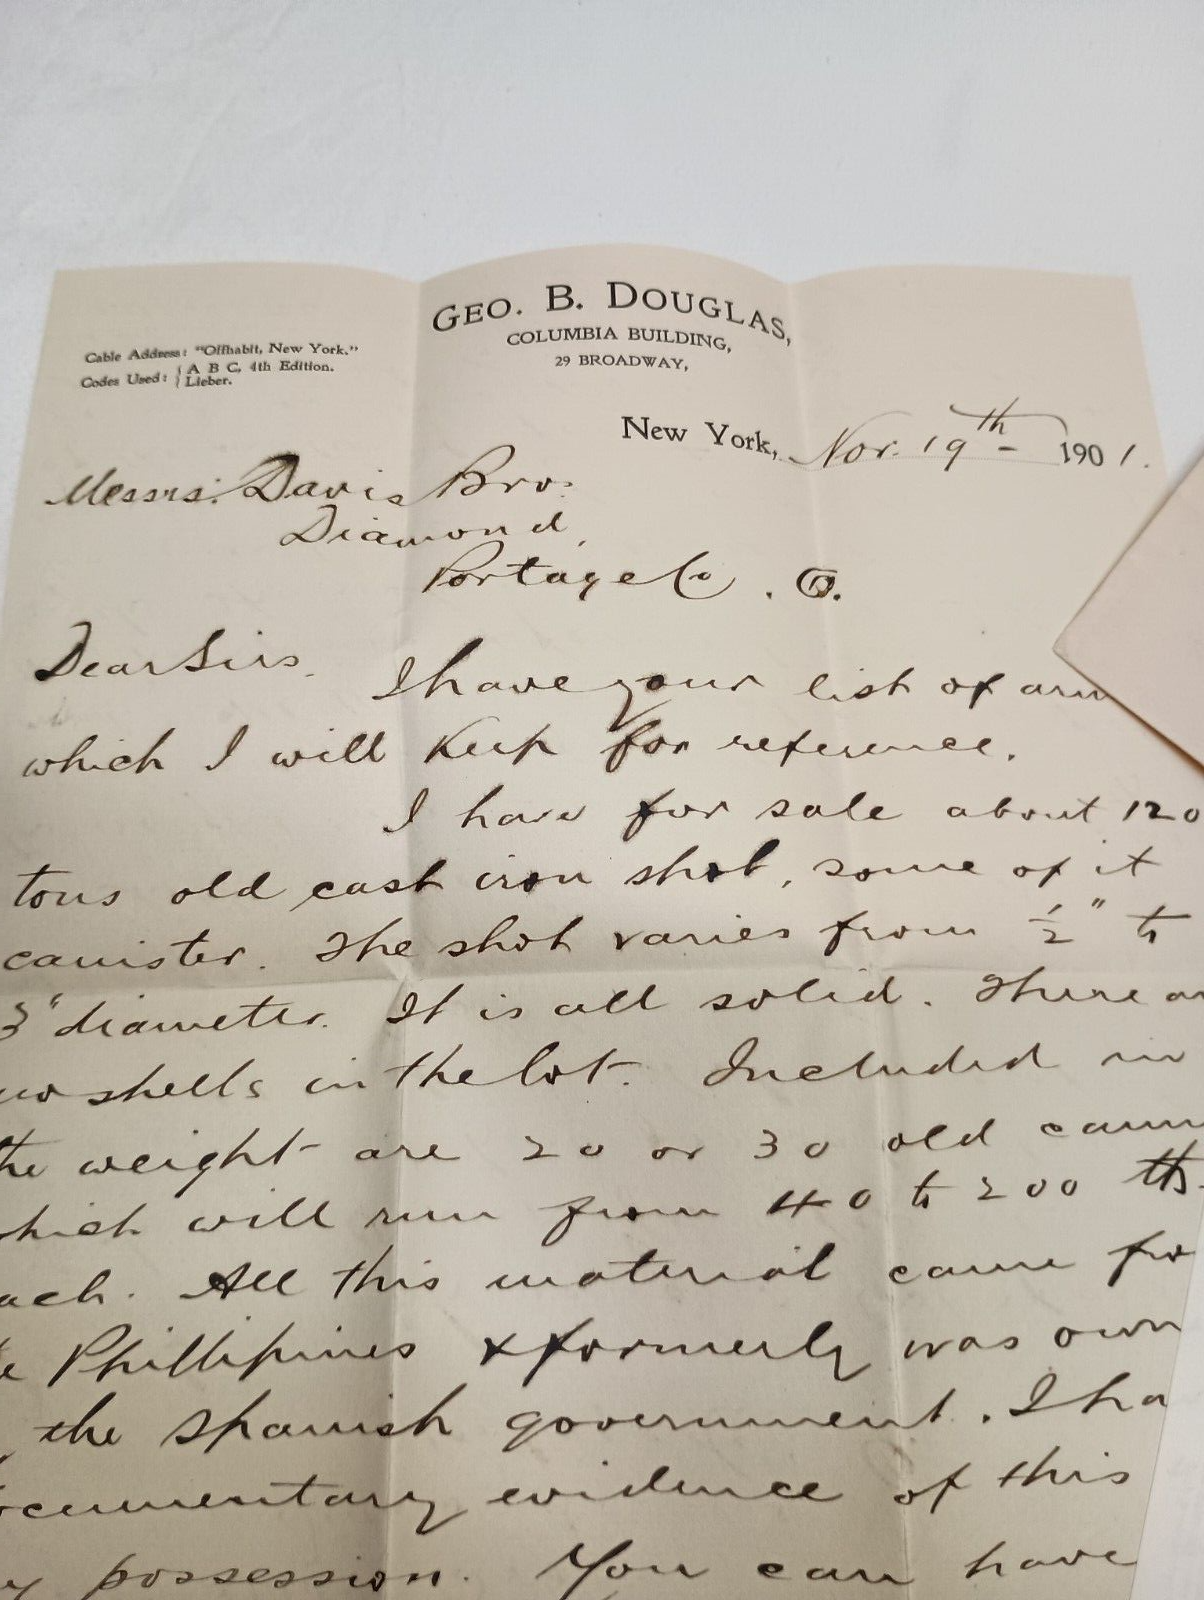 GEO. B. DOUGLAS,
COLUMBIA BUILDING,
29 BROADWAY,
Cable Address: "Offhabit, New York."
Codes Used: { A B C, 4th Edition.
Lieber.
New York, Nov. 19th - 1901.
Messrs. Davis Bro.
Diamond,
Portage Co. O.
Dear Sirs. I have your list of arm
which I will keep for reference.
I have for sale about 120
tons old cast iron shot, some of it
canister. The shot varies from 1/2" to
3" diameter. It is all solid. There ar
no shells in the lot. Included in
the weight are 20 or 30 old cann
hich will run from 40 to 200 lbs.
ach. All this material came fro
e Phillipines & formerly was own
the Spanish government. I ha
ocumentary evidence of this
y possession. You can have